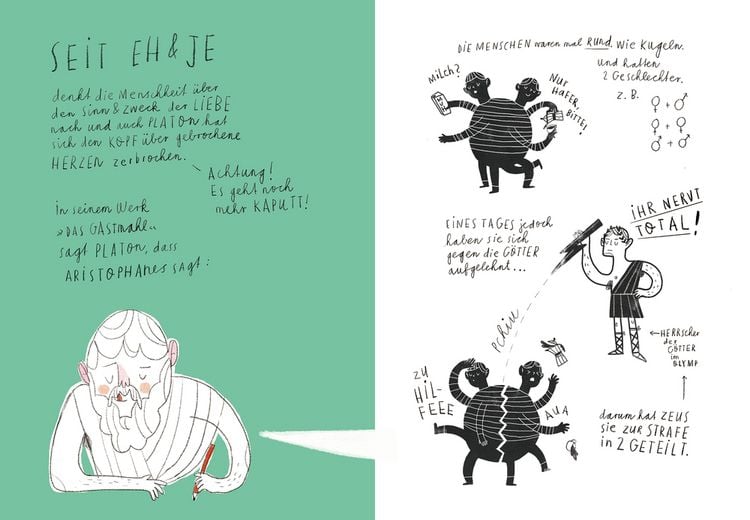 SEIT EH & JE
denkt die Menschheit über
den Sinn & Zweck der LIEBE
nach und auch PLATON hat
sich den KOPF über gebrochene
HERZEN zerbrochen.
Achtung!
Es geht noch
mehr KAPUTT!
In seinem Werk
»DAS GASTMAHL«
sagt PLATON, dass
ARISTOPHANES sagt:
DIE MENSCHEN waren mal RUND. Wie Kugeln.
Und hatten
2 Geschlechter.
z. B.
♀ + ♂
♀ + ♀
♂ + ♂
Milch?
Nur
HAFER,
BITTE!
EINES TAGES jedoch
haben sie sich
gegen die GÖTTER
aufgelehnt...
IHR NERVT
TOTAL!
PCHIUU
← HERRSCHER
der
GÖTTER
im
OLYMP
ZU
HIL-
FEEE
AUA
darum hat ZEUS
sie ZUR STRAFE
in 2 GETEILT.